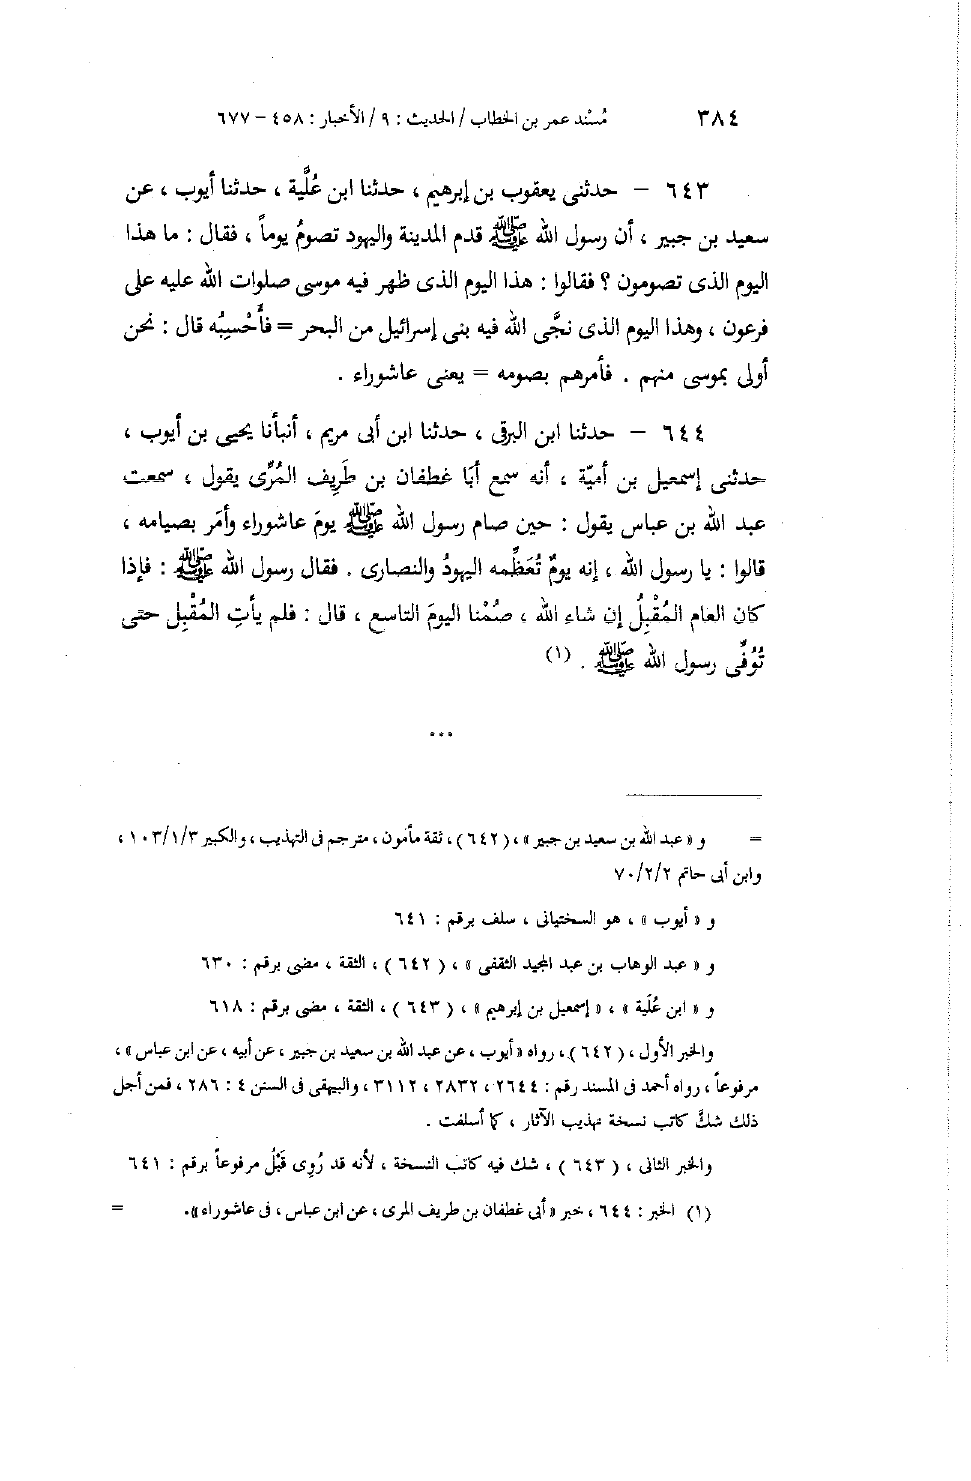 ٣٨٤ مُسْند عمر بن الخطاب / الحديث : ٩ / الأخبار : ٤٥٨ – ٦٧٧
٦٤٣ – حدثنى يعقوب بن إبرهيم ، حدثنا ابن عُلَّية ، حدثنا أيوب ، عن
سعيد بن جبير ، أن رسول الله ﷺ قدم المدينة واليهود تصومُ يوماً ، فقال : ما هذا
اليوم الذى تصومون ؟ فقالوا : هذا اليوم الذى ظهر فيه موسى صلوات الله عليه على
فرعون ، وهذا اليوم الذى نجَّى الله فيه بنى إسرائيل من البحر = فأَحْسِبُه قال : نحن
أولى بموسى منهم . فأمرهم بصومه = يعنى عاشوراء .
٦٤٤ – حدثنا ابن البرقى ، حدثنا ابن أبى مريم ، أنبأنا يحيى بن أيوب ،
حدثنى إسمعيل بن أميّة ، أنه سمع أبَا غطفان بن طَرِيف المُرِّى يقول ، سمعت
عبد الله بن عباس يقول : حين صام رسول الله ﷺ يومَ عاشوراء وأمَر بصيامه ،
قالوا : يا رسول الله ، إنه يومٌ تُعَظِّمه اليهودُ والنصارى . فقال رسول الله ﷺ : فإذا
كان العام المُقْبِلُ إن شاء الله ، صُمْنا اليومَ التاسع ، قال : فلم يأتِ المُقْبِل حتى
تُوُفِّى رسول الله ﷺ . (١)
***
= و « عبد الله بن سعيد بن جبير » ، (٦٤٢) ، ثقة مأمون ، مترجم فى التهذيب ، والكبير ١٠٣/١/٣ ،
وابن أبى حاتم ٧٠/٢/٢
و « أيوب » ، هو السختيانى ، سلف برقم : ٦٤١
و « عبد الوهاب بن عبد المجيد الثقفى » ، ( ٦٤٢ ) ، الثقة ، مضى برقم : ٦٣٠
و « ابن عُلَية » ، « إسمعيل بن إبرهيم » ، ( ٦٤٣ ) ، الثقة ، مضى برقم : ٦١٨
والخبر الأول ، (٦٤٢) ، رواه « أيوب ، عن عبد الله بن سعيد بن جبير ، عن أبيه ، عن ابن عباس » ،
مرفوعاً ، رواه أحمد فى المسند رقم : ٢٦٤٤ ، ٢٨٣٢ ، ٣١١٢ ، والبيهقى فى السنن ٤ : ٢٨٦ ، فمن أجل
ذلك شكَّ كاتب نسخة تهذيب الآثار ، كما أسلفت .
والخبر الثانى ، ( ٦٤٣ ) ، شك فيه كاتب النسخة ، لأنه قد رُوِى قَبْلُ مرفوعاً برقم : ٦٤١
(١) الخبر : ٦٤٤ ، خبر « أبى غطفان بن طريف المرى ، عن ابن عباس ، فى عاشوراء » . =